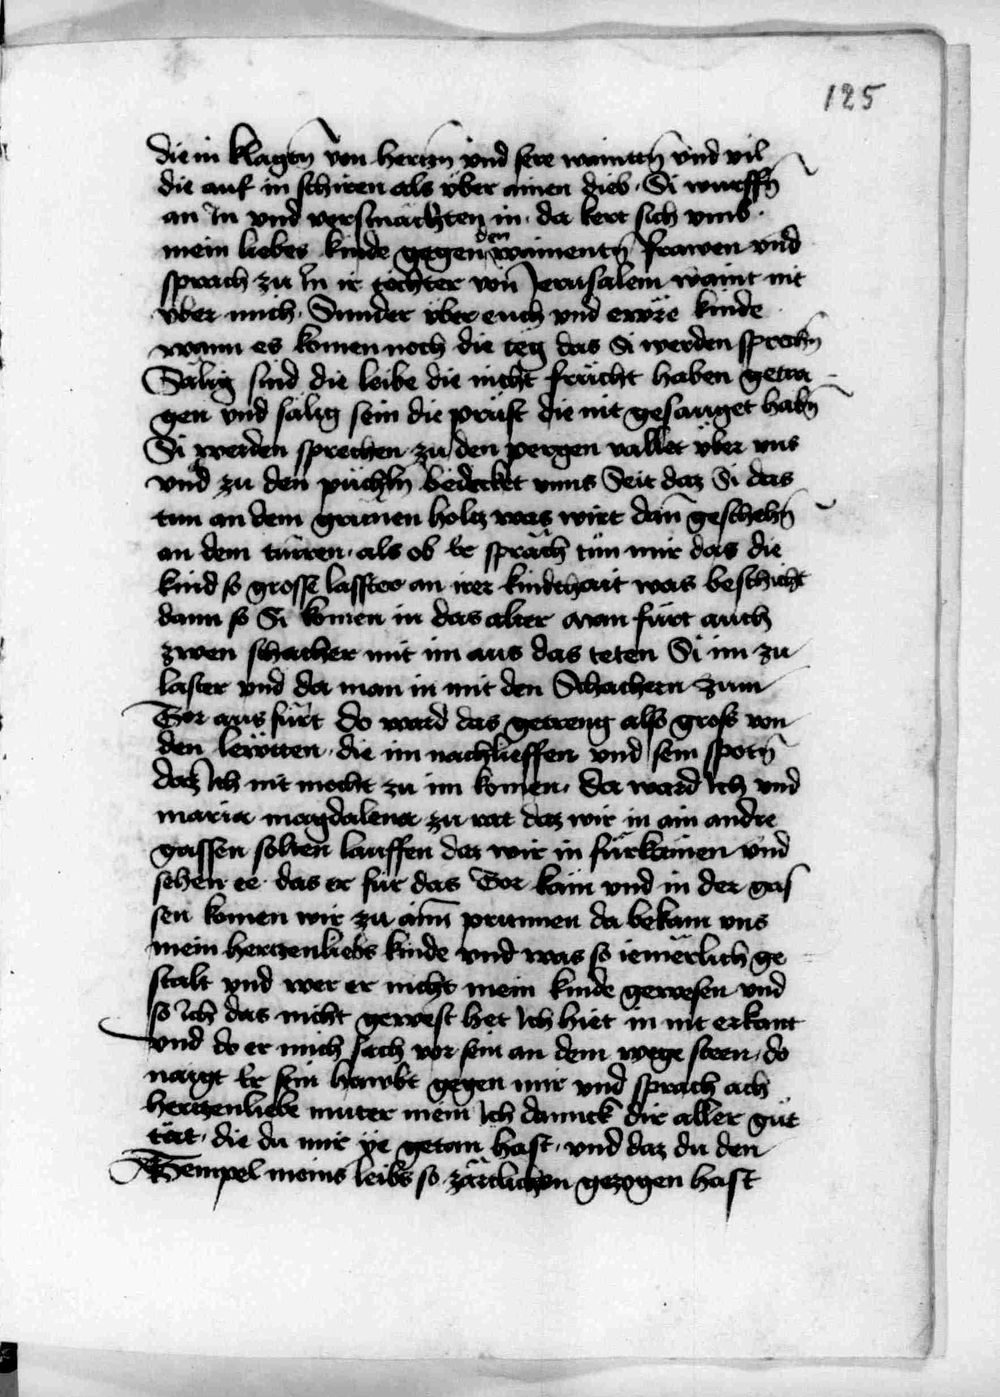 125
die in klagtn̄ von hertzn̄ vnd sere waintn̄ vnd vil
die auf in schiren als v̈ber ainen dieb · Si wurffn̄
an In vnd versmächten in · da kert sich vmb ·
mein liebes kinde gegen den wainentn̄ frawen vnd
sprach zu In ir töchter von̄ Jerusalem waint nit
vber mich · Sunder v̈ber euch vnd ewr̈e kinde
wann es komen noch die täg das Si werden sprechn̄
Sälig sind die leibe die nicht frücht haben getra
gen vnd sälig sein die prüst die nit gesauget habn̄
Si werden sprechen zu den pergen vallet v̈ber vns
vnd zu den püchln̄ bedecket vnns Seit daz Si das
tun an dem grünen holtz was wirt dan̄ geschehn̄
an dem türren · als ob Er spräch tün mir das die
kind so grosse laster an irer kindthait was beschicht
dann so Si komen in das alter Man fürt auch
zwen schacher mit im aus das teten Si im zu
laster vnd da man in mit den Schachern zum
Tor aus fürt do ward das getreng also gross von
den lewtten · die im nachlieffen vnd sein spotn̄
daz Ich nit mocht zu im komen · Da ward Ich vnd
maria magdalena zu rat daz wir in ain andre
gassen solten lauffen das wir in fürkämen vnd
sehen ee · das er für das Tor käm vnd in der gas
sen komen wir zu aim̄ prunnen da bekam vns
mein hertzenliebs kinde vnd was so iemerlich ge
stalt vnd wer er nicht mein kinde gewesen vnd
so Ich das nicht gewest het Ich hiet in nit erkant
vnd do er mich sach vor sein an dem wege steen · do
naigt Er sein hawbt gegen mir vnd sprach ach
hertzenliebe muter mein Ich dannck dir aller güt
tät · die du mir ÿe getan hast · vnd daz du den
Tempel meins leibs so zärtlichen gezogen hast